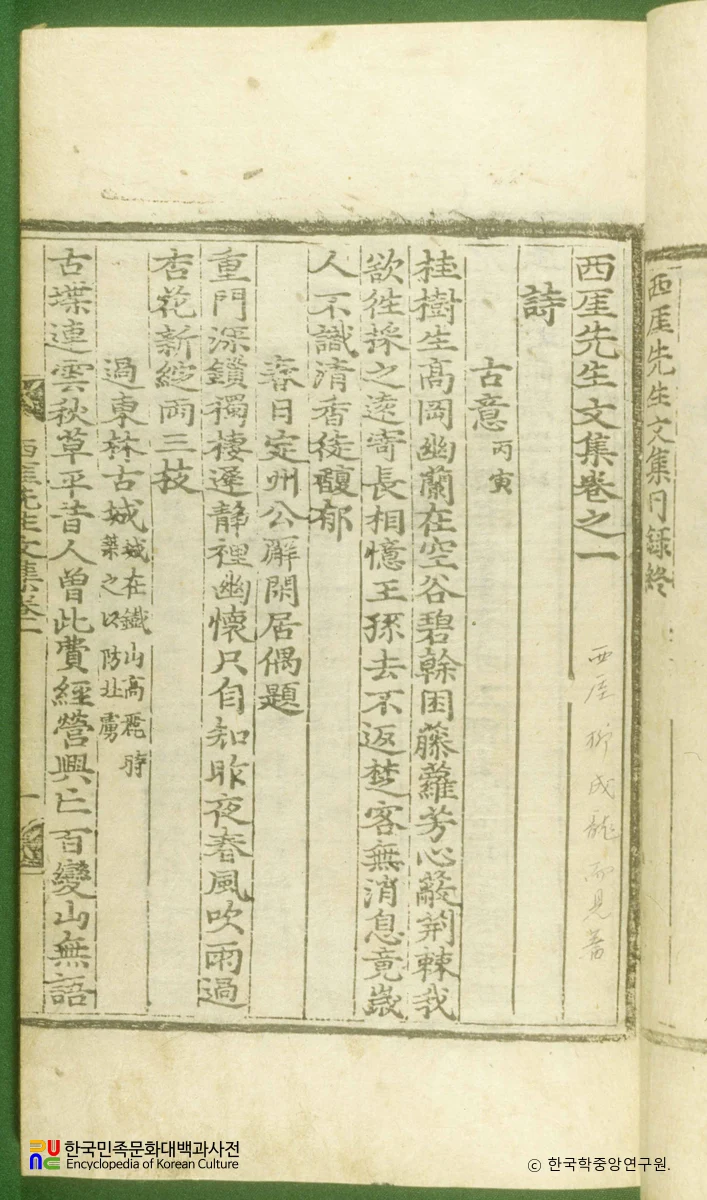 西厓先生文集目錄終
西厓先生文集卷之一
西厓 柳成龍 而見 著
詩
古意 丙寅
桂樹生高岡幽蘭在空谷碧幹困藤蘿芳心蔽荊棘我
欲徃採之遠寄長相憶王孫去不返楚客無消息竟歲
人不識淸香徒馥郁
春日定州公廨閑居偶題
重門深鎖獨棲遲靜裡幽懷只自知昨夜春風吹雨過
杏花新綻兩三技
過東林古城 城在鐵山高麗時
築之以防北虜
古堞連雲秋草平昔人曾此費經營興亡百變山無語
西厓先生文集卷一
一
한국민족문화대백과사전
Encyclopedia of Korean Culture
ⓒ 한국학중앙연구원.